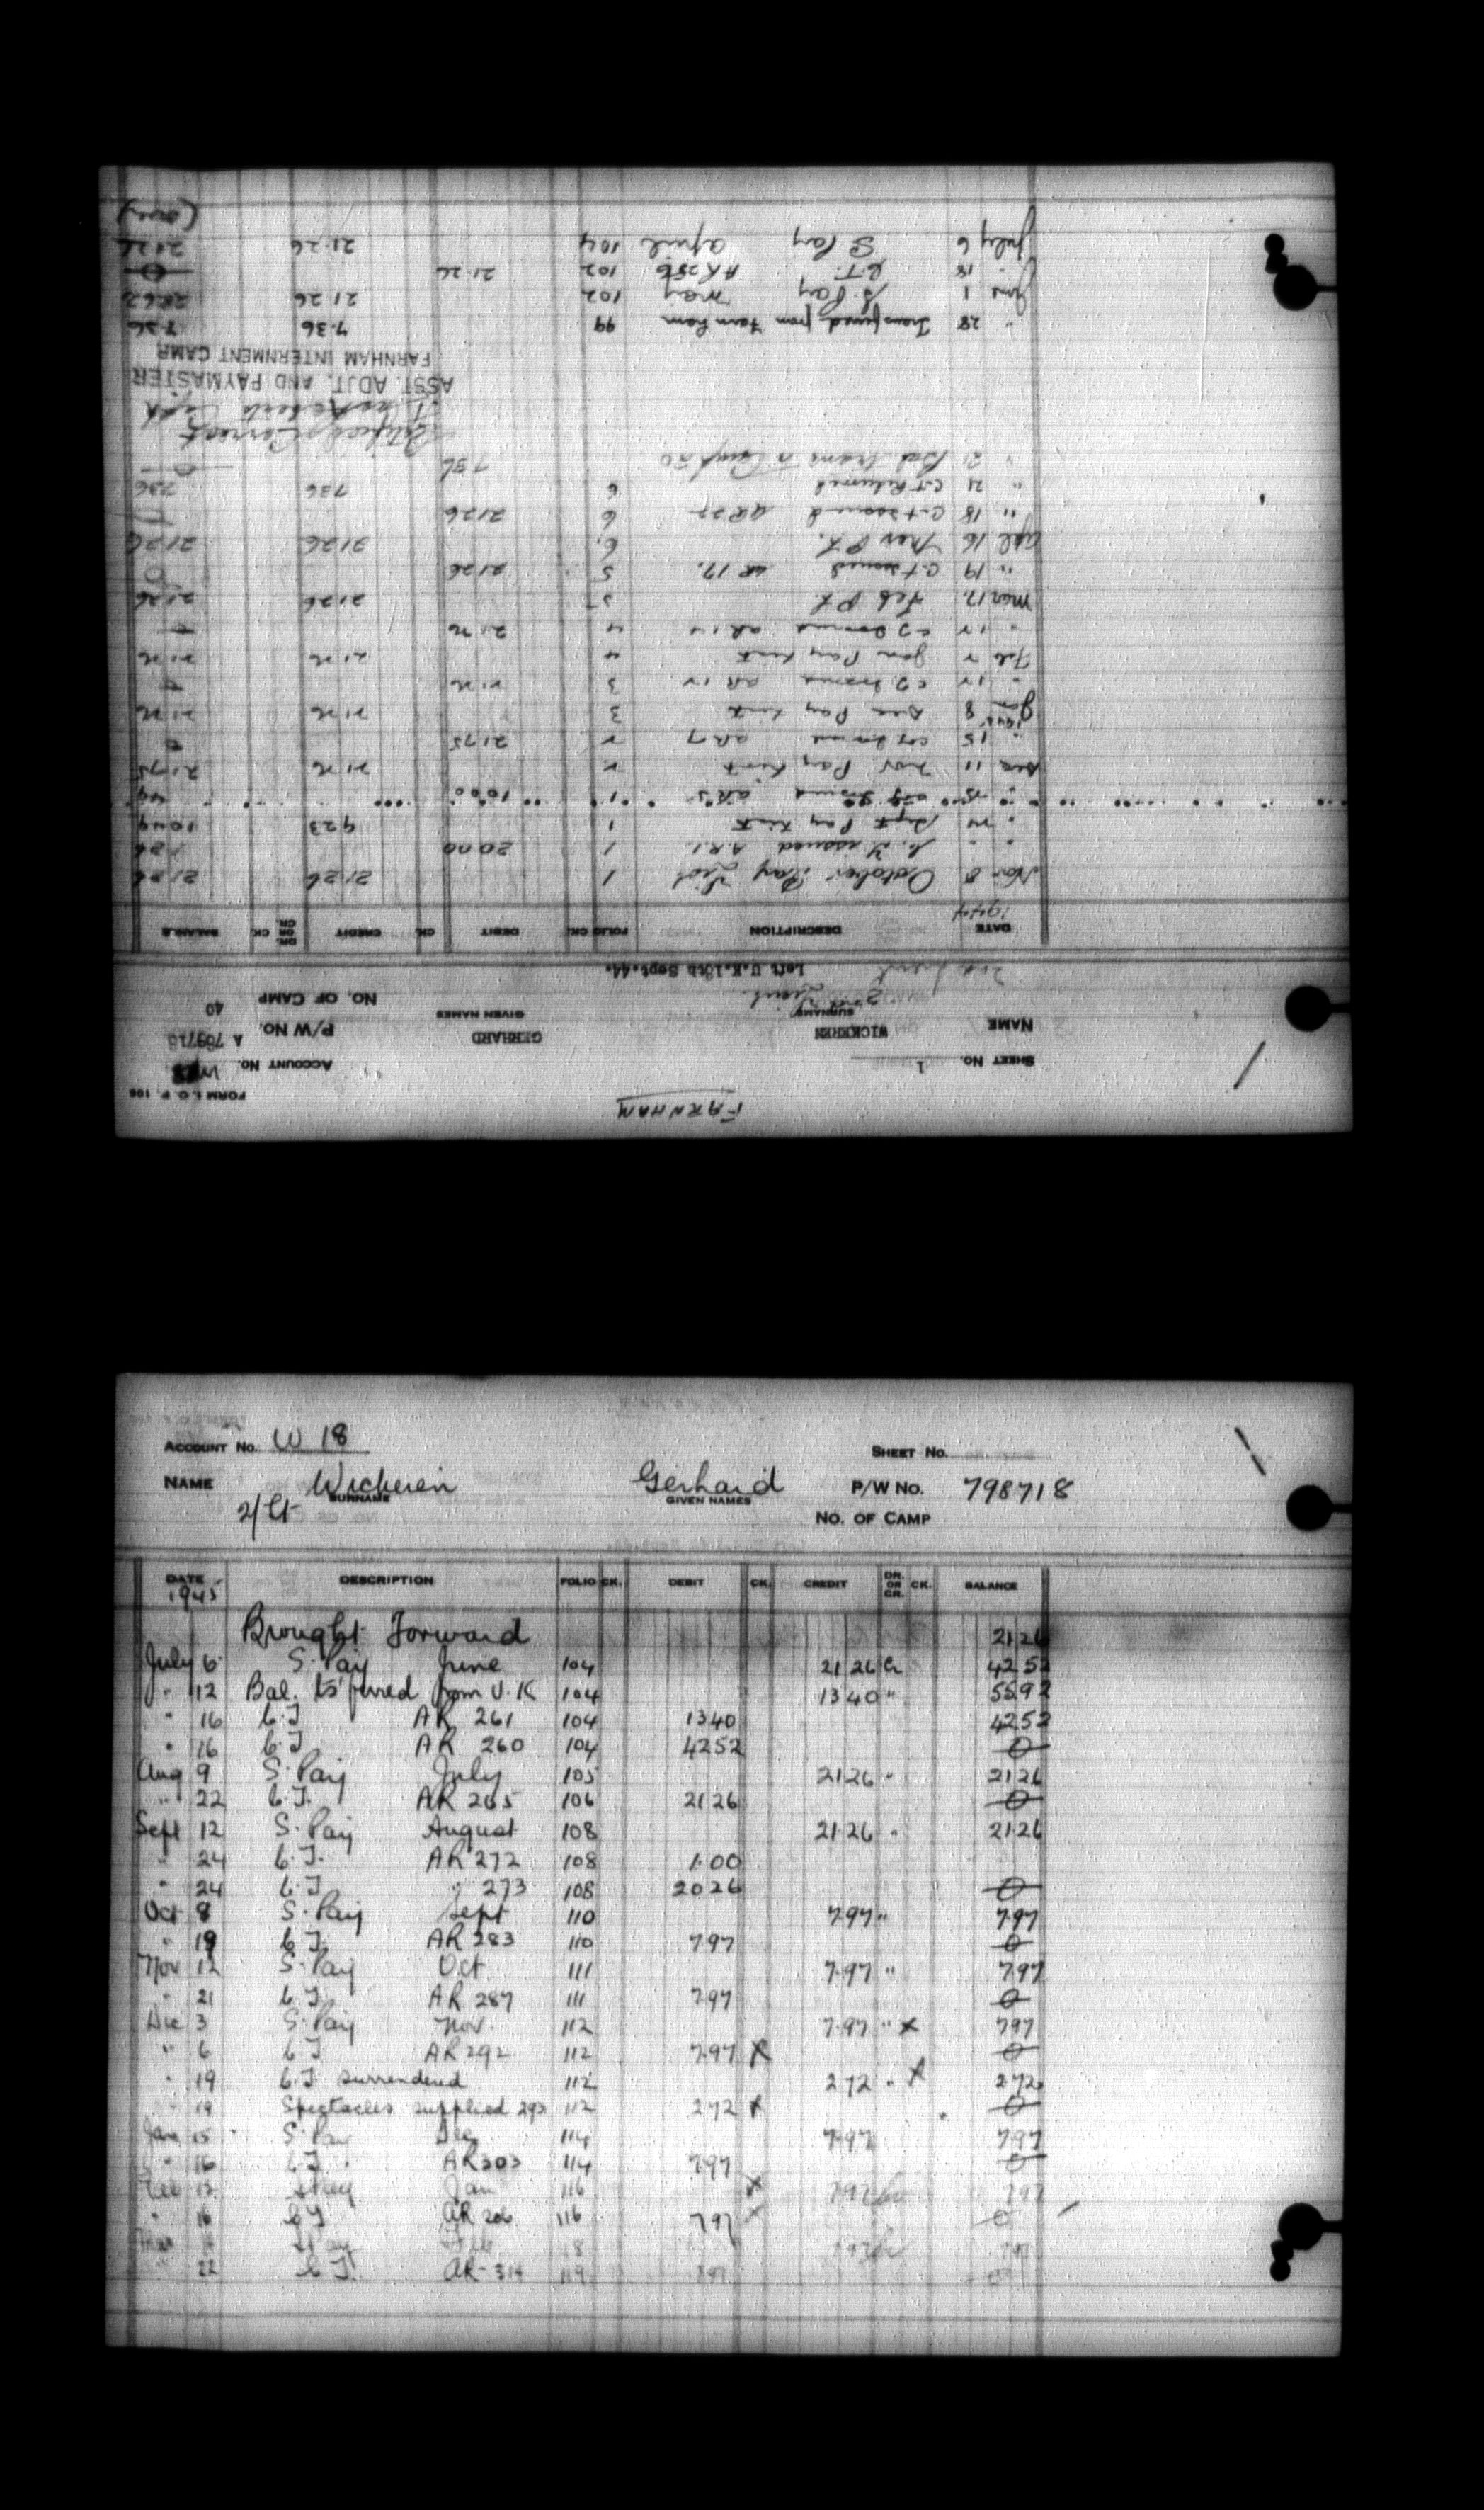 FARNHAM
FORM I.O.P. 106
SHEET NO. 1
ACCOUNT NO. W18
NAME WICKEREN GERHARD P/W NO. A 789718
SURNAME GIVEN NAMES
2nd Lieut. NO. OF CAMP 40
Left U.K.18th Sept.44.
DATE DESCRIPTION FOLIO CK. DEBIT CK. CREDIT DR. OR CR. CK. BALANCE
1944
Nov 8 October Pay List 1 21 26 21 26
" " C.T issued A.R.1. 1 20 00 1 26
" Sept Pay List 1 9 23 10 49
" AR 5 1 10 00 49
Dec 11 Nov Pay List 2 21 26 21 75
" 15 AR 7 2 21 75
1945
Jan 8 Dec Pay List 3 21 26 21 26
" 12 CT Issued AR 12 3 21 26
Feb 2 Jan Pay List 4 21 26 21 26
" 12 CT Issued AR 14 4 21 26
Mar 12 Feb P.L. 5 21 26 21 26
" 19 C.T issued AR 17. 5 21 26 0
Apl 16 Mar P.L. 6 21 26 21 26
" 18 C.T issued AR 22 6 21 26
" 21 C.T Returned 6 7 36 7 36
" 21 Bal trans to Camp 20 7 36 0
Certified Correct
ASST. ADJT. AND PAYMASTER
FARNHAM INTERNMENT CAMP
" 28 Transferred from Farnham 99 7.36 7.36
June 1 S. Pay May 102 21 26 28 62
" 18 C.T. AR 256 102 21.26 0
July 6 S Pay April 104 21.26 21 26
(over)
ACCOUNT NO. W 18 SHEET NO.
NAME Wickeren Gerhard P/W NO. 798718
SURNAME GIVEN NAMES
2/Lt NO. OF CAMP
DATE DESCRIPTION FOLIO CK. DEBIT CK. CREDIT DR. OR CR. CK. BALANCE
1945
Brought Forward 21 26
July 6 S. Pay June 104 21 26 Cr 42 52
" 12 Bal. ts'furred from U.K 104 13 40 " 55 92
" 16 C.T AR 261 104 13 40 42 52
" 16 C.T AR 260 104 42 52 0
Aug 9 S. Pay July 105 21 26 " 21 26
" 22 C.T. AR 265 106 21 26 0
Sept 12 S. Pay August 108 21.26 " 21 26
" 24 C.T. AR 272 108 1.00
" 24 C.T " 273 108 20 26 0
Oct 8 S. Pay Sept 110 7.97 " 7 97
" 19 C.T. AR 283 110 7 97 0
Nov 12 S. Pay Oct 111 7.97 " 7 97
" 21 C.T. AR 287 111 7 97 0
Dec 3 S. Pay Nov. 112 7.97 " x 7 97
" 6 C.T AR 292 112 7.97 x 0
" 19 C.T surrendered 112 2 72 " x 2 72
" 19 Spectacles supplied 293 112 2 72 x 0
Jan 15 S. Pay Dec 114 7.97 7 97
" 16 C.T. AR 303 114 7 97 0
Feb 12 S Pay Jan 116 x 7 97 7 97
" 16 C.T AR 206 116 7 97 x 0
Mar S Pay Feb
" 22 C.T. AR-314 119 7 97 0